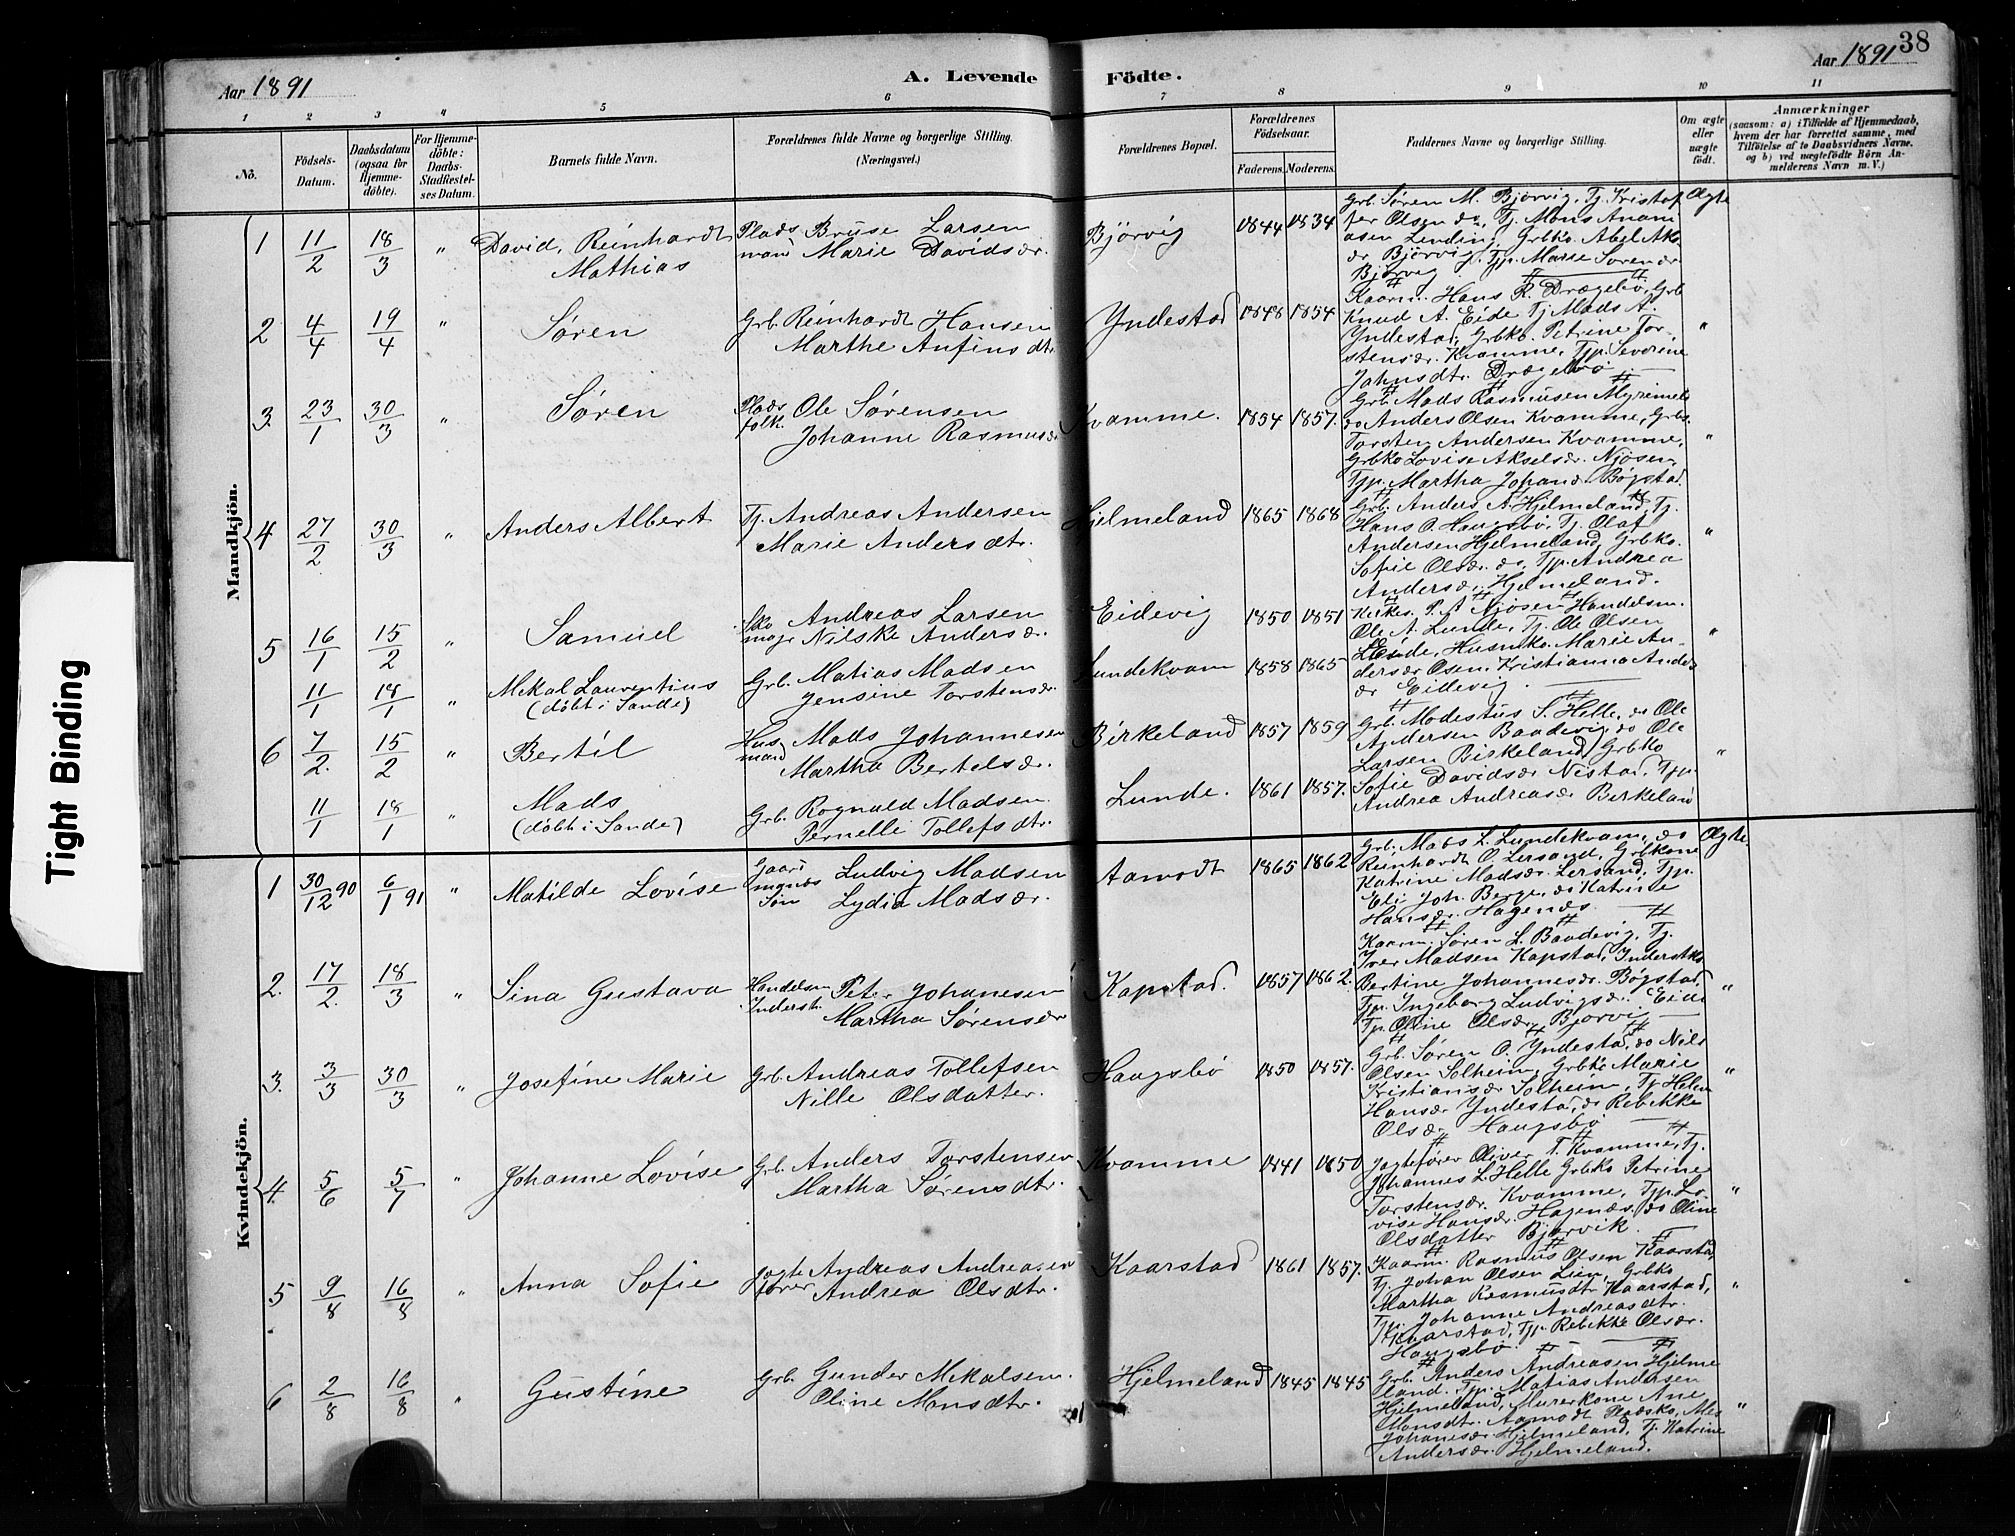 Aar 1891
A. Levende Födte.
Aar 1891
38
1 2 3 4 5 6 7 8 9 10 11
No.
Födsels-Datum.
Daabsdatum (ogsaa for Hjemme-döbte).
For Hjemme-döbte: Daabs-Stadfæstel-ses Datum.
Barnets fulde Navn.
Forældrenes fulde Navne og borgerlige Stilling. (Næringsvei.)
Forældrenes Bopæl.
Forældrenes Födselsaar.
Faderens. Moderens.
Faddernes Navne og borgerlige Stilling.
Om ægte eller uægte födt.
Anmærkninger
(saasom: a) i Tilfælde af Hjemmedaab,
hvem der har forrettet samme, med
Tilföielse af to Daabsvidners Navne,
og b) ved uægtefödte Börn An-
melderens Navn m. V.)
Tight Binding
Mandkjön.
1 11/2 18/3 " David, Reinhardt Mathias
Pladsmand Bruse Larsen
Marie Davidsdr.
Bjørvig 1844 1834
Grb. Søren M. Bjørvig, Tj. Kristof
fer Olsen do, Tj. Mons Anam
Bjørvig, Tjp. Marie Sørensdr
Bjørvig
Ægte
2 4/4 19/4 " Søren
Grb. Reinhardt Hansen
Marthe Anfinsdtr.
Yndestad 1848 1854
Kaarm. Hans R. Drægebø, Grb
Knud A. Eide Tj Mads A.
Yndestad, Grbko. Petrine Tor-
stensdr. Kvamme, Tjp. Severine
Johnsdtr. Drægebø
"
3. 23/1 30/3 " Søren
Pladsfolk. Ole Sørensen
Johanne Rasmusdr
Kvamme. 1854 1857.
Grb. Mads Rasmusen
do Anders Olsen Kvamme, Grbs.
Torsten Andersen Kvamme,
Grbko Lovise Akselsdr. Njøsen,
Tjp. Martha Johansdr Bøgstad.
"
4 27/2 30/3 " Anders Albert
Tj. Andreas Andersen
Marie Andersdtr.
Hjelmeland 1865 1868
Grb. Anders A. Hjelmeland, Tj.
Hans O. Haugsbø, Tj. Olaf
Andersen Hjelmeland, Grbko.
Sofie Olsdr. do, Tjp. Andrea
Andersdr. Hjelmeland.
"
5 16/1 15/2 " Samuel
Skomagr Andreas Larsen
Nilske Andersdr.
Eidevig 1850 1851
Kirkes. P. A Njøsen Handelsm.
Ole A. Lunde, Tj. Ole Olsen
Leide, Husmko. Marie An-
dersdr Osen, Kristianna Anders
dr Eidevig.
"
11/1 18/1 " Mekal Laurentius
(døbt i Sande)
Grb. Matias Madsen
Jensine Torstensdr.
Lundekvam 1858 1865
6 7/2. 15/2 " Bertil
Husmand Mads Johannesen
Martha Bertelsdr.
Birkeland 1857 1859
Grb. Modestus S. Helle, do Ole
Andersen Baadevig, do Ole
Larsen Birkeland, Grbko
Sofie Davidsdr Nistad, Tjp.
Andrea Andreasdr Birkeland
"
11/1 18/1 " Mads
(døbt i Sande)
Grb. Rognald Madsen.
Pernelle Tollefsdtr.
Lunde. 1861 1857.
Kvindekjön.
1 30/12 90 6/1 91 " Matilde Lovise
Gaardmands Søn Ludvig Madsen
Lydia Madsdr.
Aamodt 1865 1862
Grb. Mads L. Lundekvam, do
Reinhardt O. Lersand, Grbkone
Katrine Madsdr. Lersand, Tjp.
Eli Joh. Berge, do Katrine
Hansdr. Hagenæs.
Ægte
2. 17/2. 18/3 " Sina Gustava
Handelsm Inderst. Peter Johanesen
Martha Sørensdr
Kapstad. 1857 1862
Kaarm. Søren L. Baadevig, Tj.
Iver Madsen Kapstad, Inderstko
Bertine Johannesdr. Bøgstad,
Tjp. Ingeborg Ludvigsdr. Eide
Tjp. Oline Olsdr Bjørvig
"
3. 3/3 30/3 " Josefine Marie
Grb. Andreas Tollefsen
Nille Olsdatter.
Haugsbø 1850 1857.
Grb. Søren O. Yndestad, do Nils
Olsen Solheim, Grbko Marie
Kristiansdr Solheim, Tj. Helene
Hansdr Yndestad, do Rebikke
Olsdr Haugsbø
"
4. 5/6 5/7 " Johanne Lovise
Grb. Anders Torstensen
Martha Sørensdtr.
Kvamme 1841 1850
Jagtefører Oliver T. Kvamme, Tj.
Johannes L. Helle Grbko Petrine
Torstensdr. Kvamme, Tjp. Lo-
vise Hansdr. Hagenæs, do Oline
Olsdatter Bjørvik.
"
5 9/8 16/8 " Anna Sofie
Jagtefører Andreas Andreasen
Andrea Olsdtr.
Kaarstad 1861 1857.
Kaarm. Rasmus Olsen Kaarstad,
Tj. Johan Olsen Lien, Grbko
Martha Rasmusdtr Kaarstad,
Tjp. Johanne Andreasdtr.
Kaarstad, Tjp. Rebikke Olsdr.
Haugsbø
"
6 2/8 16/8 " Gustine
Grb. Gunder Mekalsen.
Oline Monsdtr.
Hjelmeland 1845 1845
Grb. Anders Andreasen Hjelme
land. Tjp. Matias Andersen
Hjelmeland, Murerkone Ane
Monsdtr. Aamodt Pladsko,
Johanesdr Hjelmeland, Tj. Katrine
Andersdr. Hjelmeland.
"